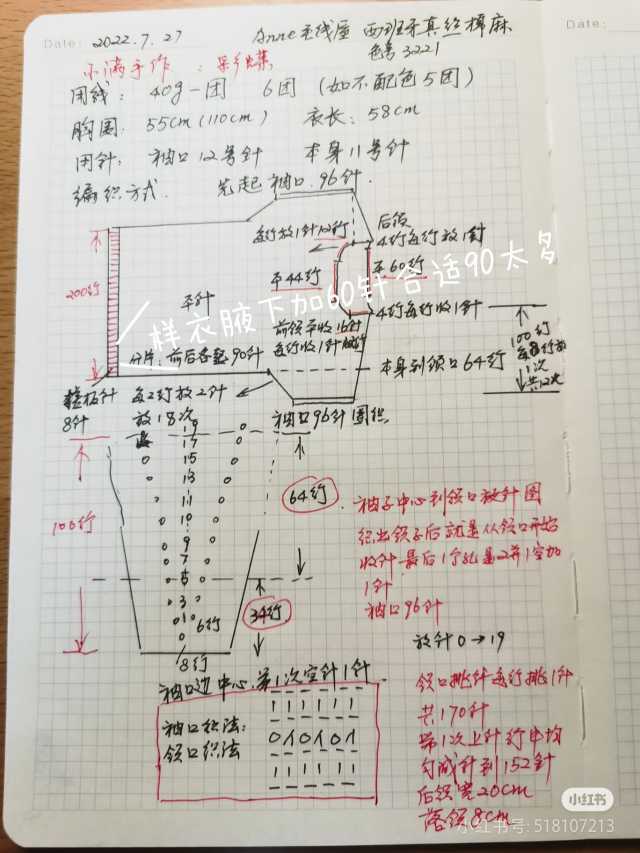 Date: 2022.7.27
Date:
Anne毛线屋 西班牙真丝棉麻
色号3221
小满手作
用线: 40g一团 6团 (如不配色5团)
胸围: 55cm(110cm) 衣长: 58cm
用针: 袖口12号针 本身11号针
编织方式. 先起袖口.96针.
后领
4行每行放1针
平44行
平60行
200行
平针
样衣腋下加60针合适90太多
前领平收16针
4行每行收1针
分片:前后各 90针
本身到领口64行
100行
1次
共12次
8针
每2行放2针
放18次
袖口96针圈织
19
17
15
13
11
10
9
7
5
3
0
100行
64行
34行
6行
8行
袖子中心到领口放针图
织出领子后就是从领口开始
收针最后1个孔是2并1空加
1针
袖口96针
放针0→19
袖口边中心.第1次空针1针
袖口织法:
领口织法
| | | | | |
0人0人0人
| | | | | |
领口挑针每行挑1针
共170针
第1次上针行中均
匀减针到152针
后领宽20cm
落领8cm
小红书
小红书号: 518107213